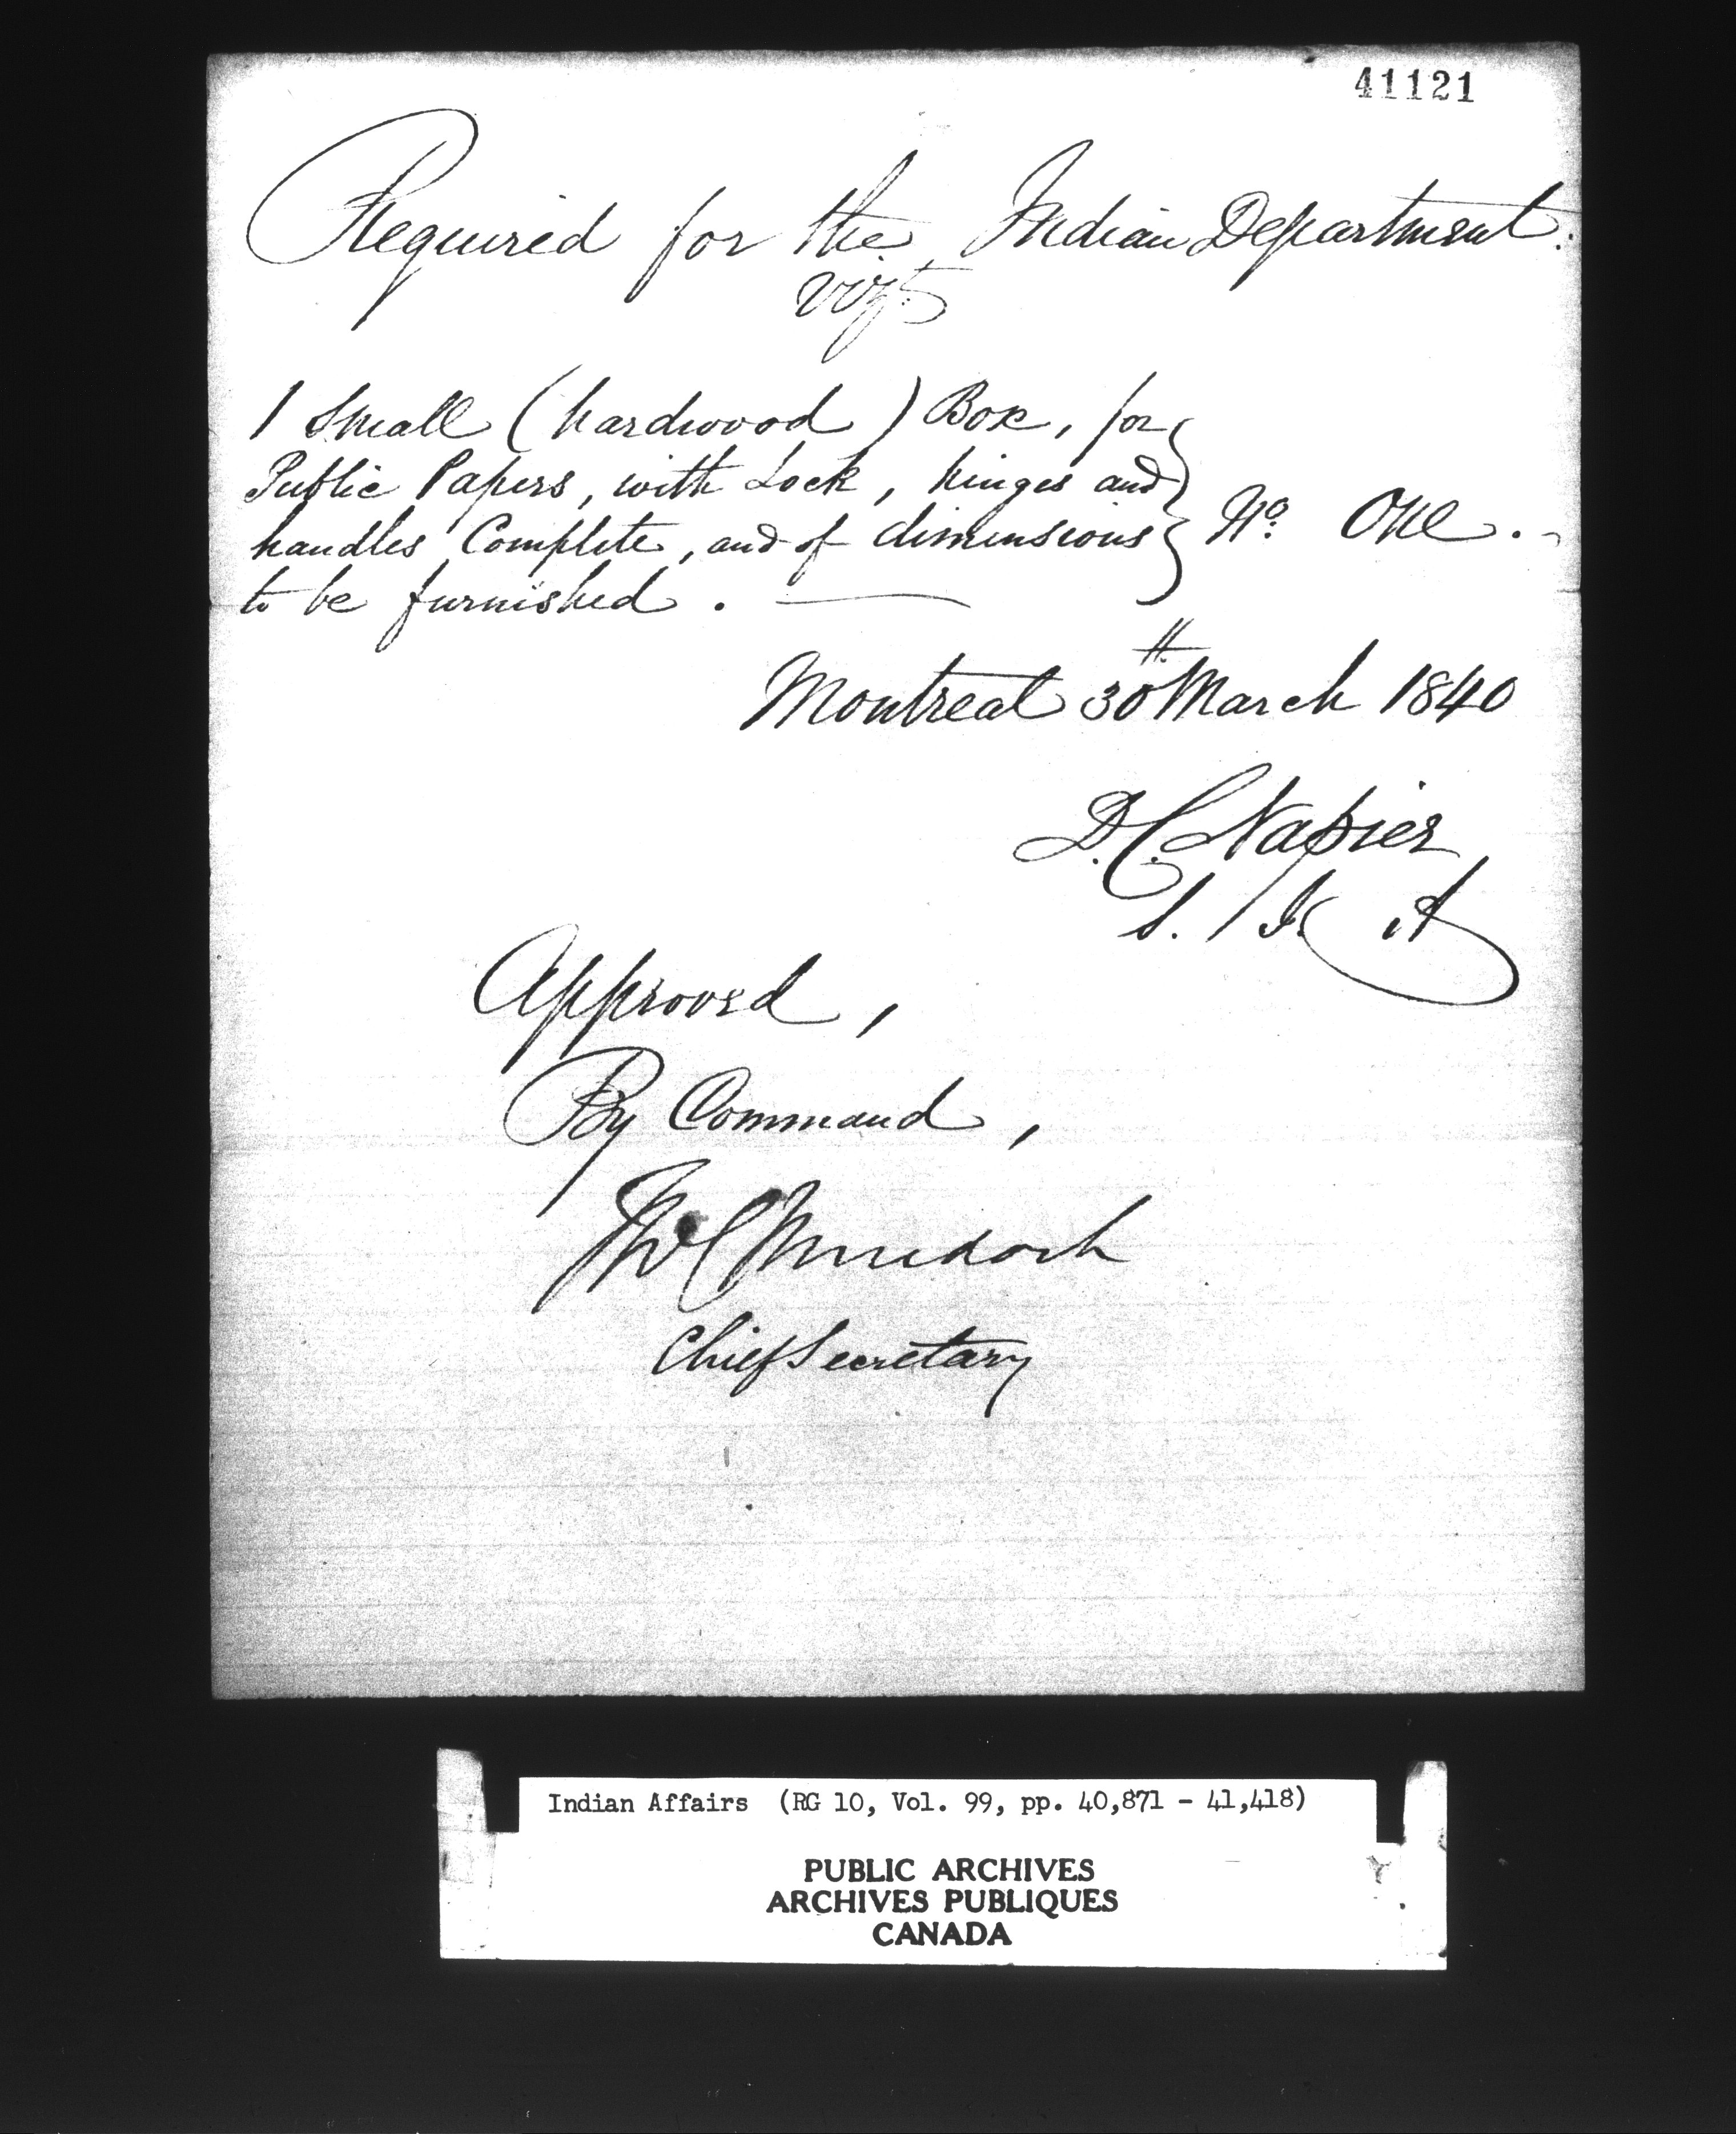 41121
Required for the Indian Department:
vizt
1 Small (hardwood) Box, for
Public Papers, with Lock, hinges and
handles Complete, and of dimensions } No. One.
to be furnished. —
Montreal 30th March 1840
D. C. Napier
S. I. A
Approved,
By Command,
Murdoch
Chief Secretary
Indian Affairs (RG 10, Vol. 99, pp. 40,871 - 41,418)
PUBLIC ARCHIVES
ARCHIVES PUBLIQUES
CANADA